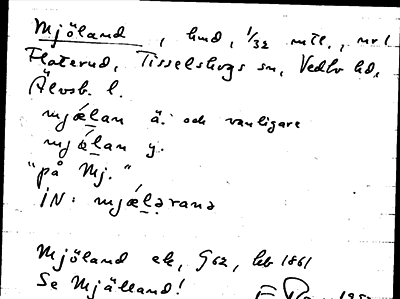 Mjöland, hmd, 1/32 mtl., nr 1
Flaterud, Tisselskogs sn, Vedbo hd,
Älvsb. l.
mjǽlan ä. och vanligare
mjǽlan y.
"på Mj."
IN: mjǽlərana
Mjöland ek, G62, lbb 1861
Se Mjälland!